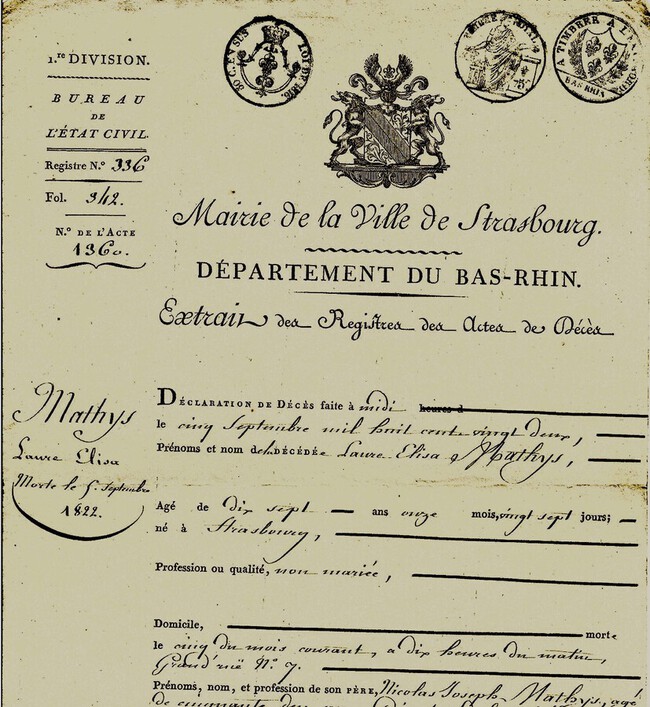 30 C. EN SUS LOI DE 1816.
A TIMBRER A L'EXTRAORD.
BAS-RHIN
1.re DIVISION.
BUREAU
DE
L'ÉTAT CIVIL.
Registre N.° 336
Fol. 342.
N.° DE L'ACTE
1360.
Mairie de la Ville de Strasbourg.
DÉPARTEMENT DU BAS-RHIN.
Extrait des Registres des Actes de Décès
Mathys
Laure Elisa
Morte le 5. Septembre
1822.
DÉCLARATION DE DÉCÈS faite à midi heures d
le cinq Septembre mil huit cent vingt deux,
Prénoms et nom de la DÉCÉDÉe Laure Elisa Mathys,
Agé de dix sept ans onze mois, vingt sept jours;
né à Strasbourg,
Profession ou qualité, non mariée,
Domicile, morte
le cinq du mois courant, à dix heures du matin,
Grand'rüe N.° 7.
Prénoms, nom, et profession de son PÈRE, Nicolas Joseph Mathys, agé
de cinquante